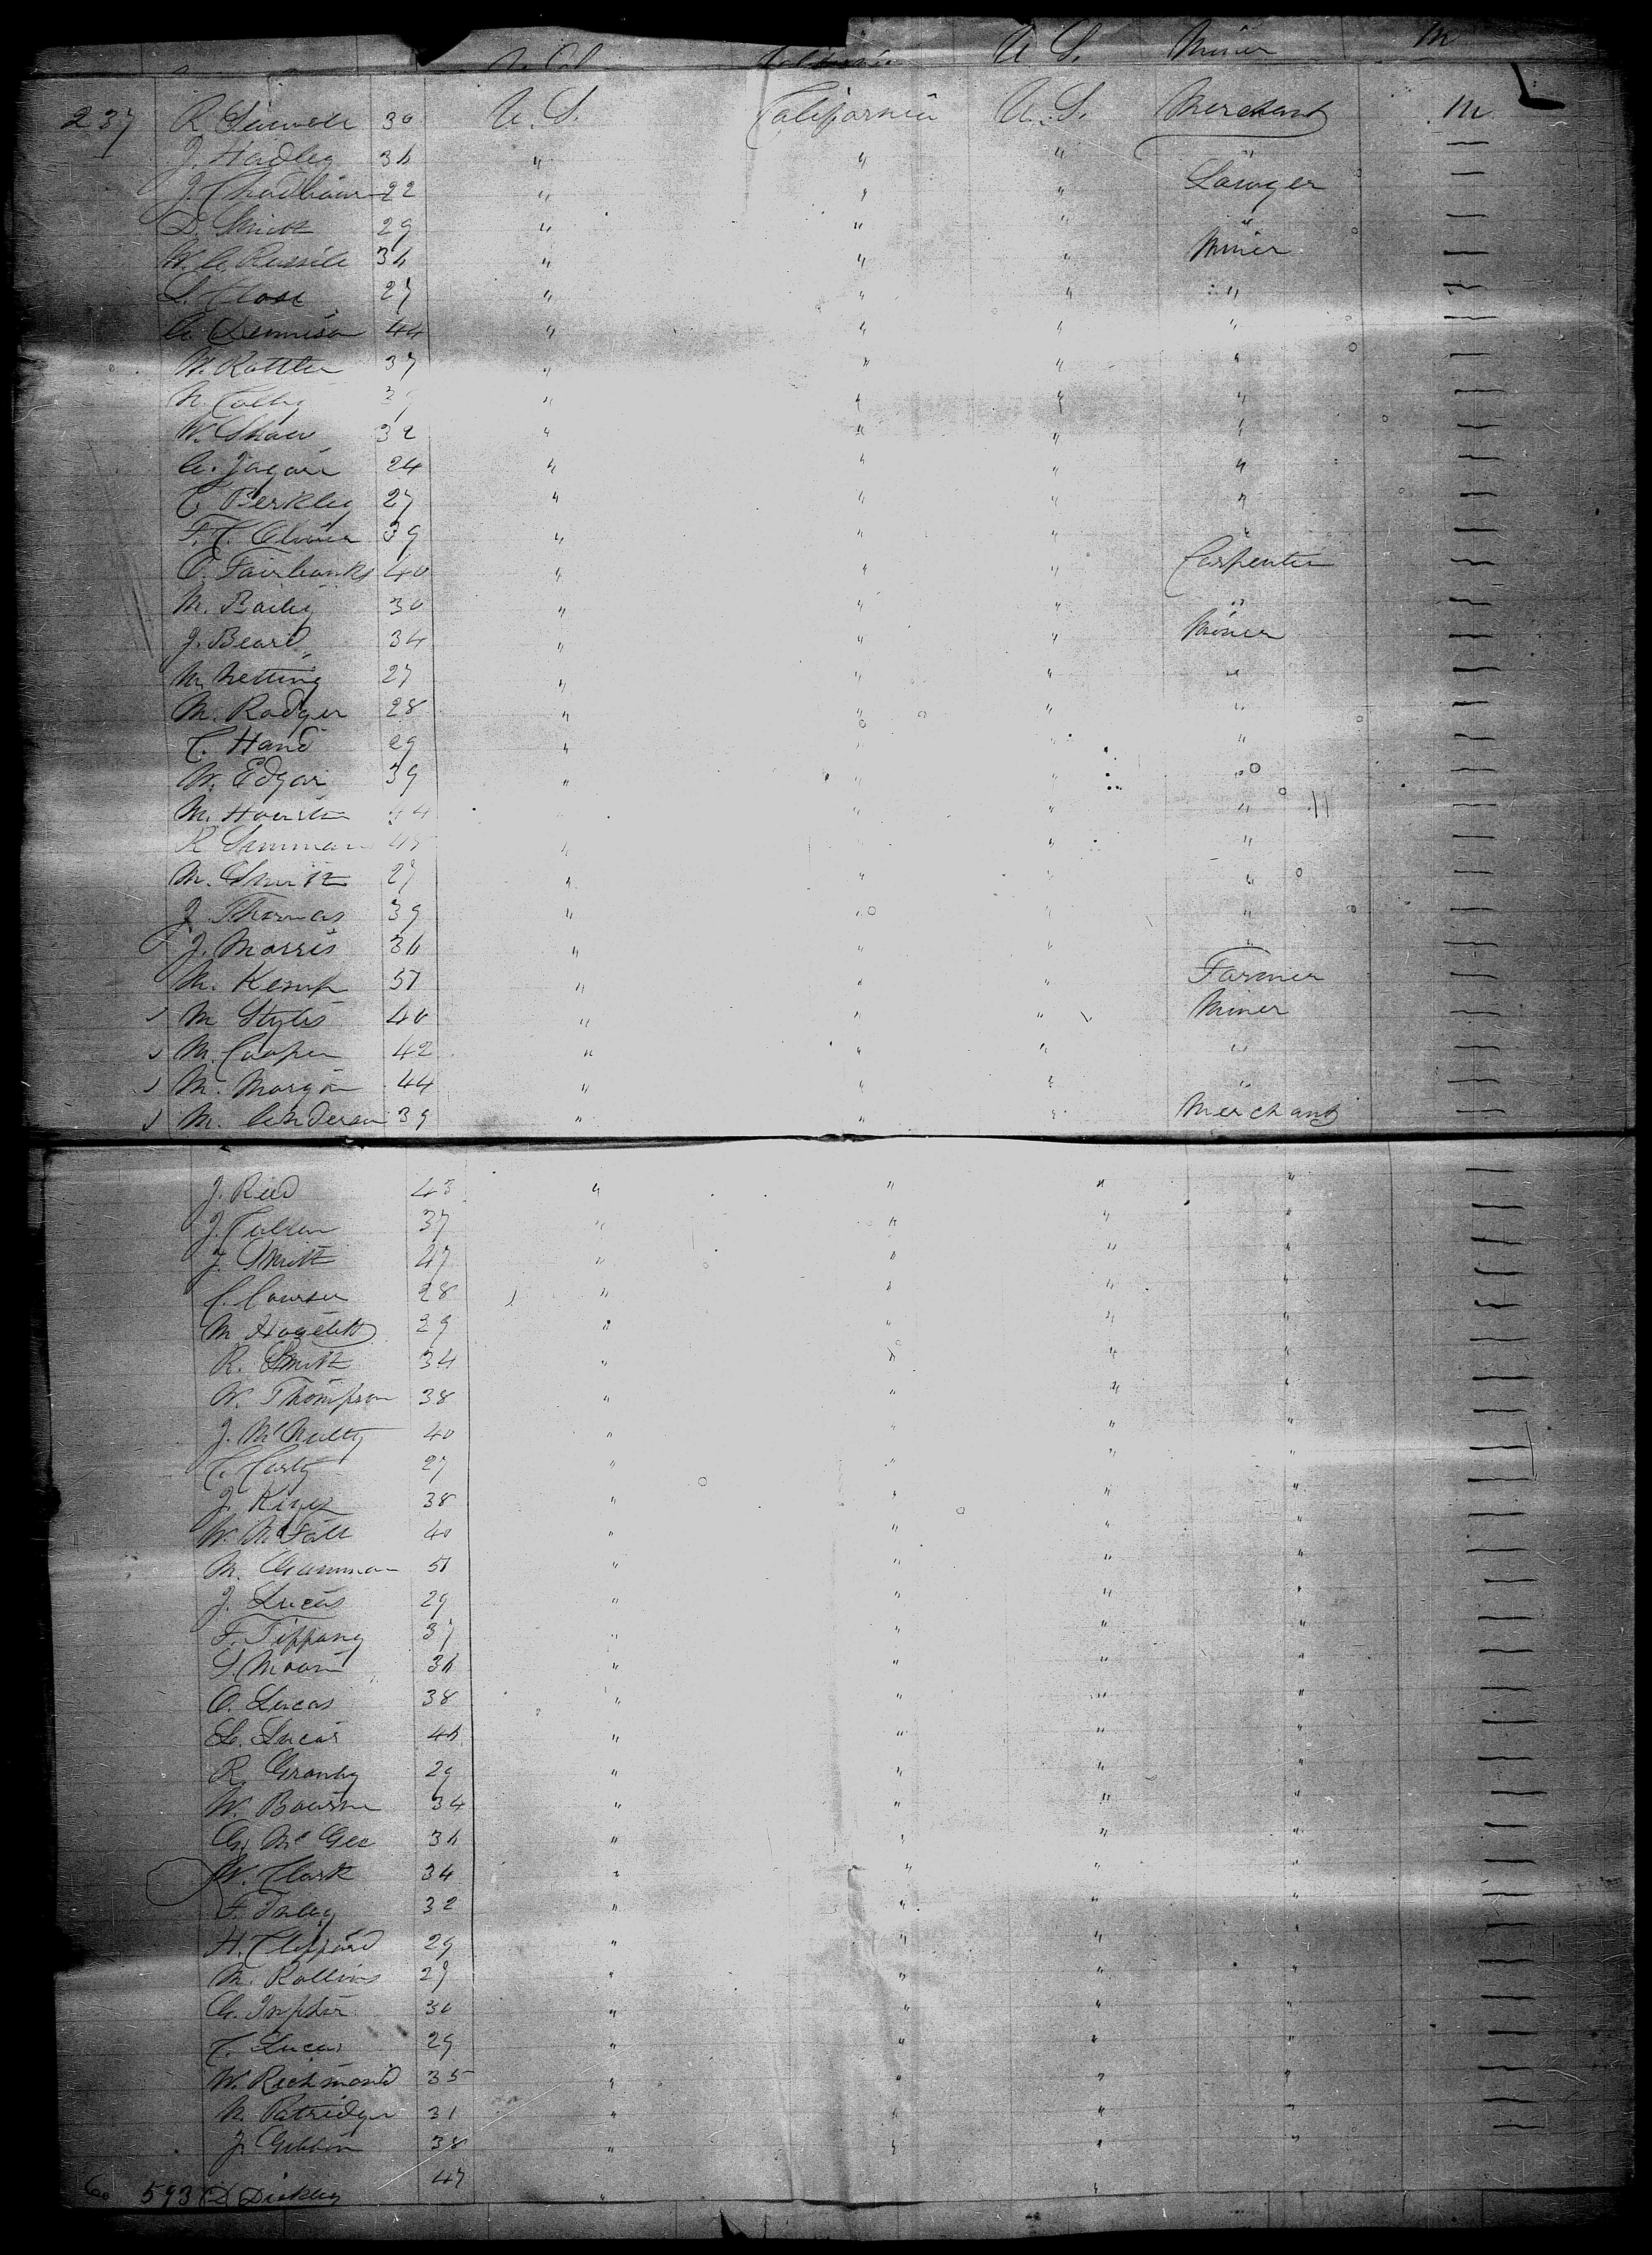 U.S. Miner M
237 R 30 U. S. California U. S. Merchant M.
J. Hadley 36 " " " "
J. Chadbourn 22 " " " Lawyer
D. Smith 29 " " " "
W. C. Russell 36 " " " Miner
S. Close 27 " " " "
A. Dennison 44 " " " "
M. Rattler 37 " " " "
N. Colby " " " "
W. Shaw 32 " " " "
A. 24 " " " "
C. Berkley 27 " " " "
F. C. Oliver 39 " " " "
O. Fairbanks 40 " " " Carpenter
M. Baily 30 " " " "
J. Beard 34 " " " Miner
M. Netting 27 " " " "
M. Rodger 28 " " " "
C. Hand 29 " " " "
W. Edgar 39 " " " "
M. Houston 44 " " "
R. " " "
M. Smith 27 " " " "
J. Thomas 39 " " " "
J. Morris 36 " " " "
M. Kemp 51 " " " Farmer
M Styles 40 " " " Miner
M. Cooper 42 " " " "
M. Morgan 44 " " " "
M. Anderson 39 " " " Merchant
J. Reed 43 " " " "
J. Colson 37 " " " "
J. Smith 47 " " " "
C. 28 " " " "
M. 29 " " " "
R. Smith 34 " " " "
W. Thompson 38 " " " "
J. McNulty 40 " " " "
C. Carty 27 " " " "
J. 38 " " " "
W. McFall 40 " " " "
M. Gammon 51 " " " "
J. Lucas 29 " " " "
F. Tiffany 37 " " " "
S. Moore 36 " " " "
O. Lucas 38 " " " "
L. Lucas 46 " " " "
R. Granby 29 " " " "
W. Bourne 34 " " " "
G. McGee 36 " " " "
W. Clark 34 " " " "
F. 32 " " " "
H. Clifford 29 " " " "
M. Rollins 29 " " " "
G. 30 " " " "
C. Lucas 29 " " " "
W. Richmond 35 " " " "
N. Patridger 31 " " " "
J. Gibbon 38 " " " "
593 D Dickley 47 " "